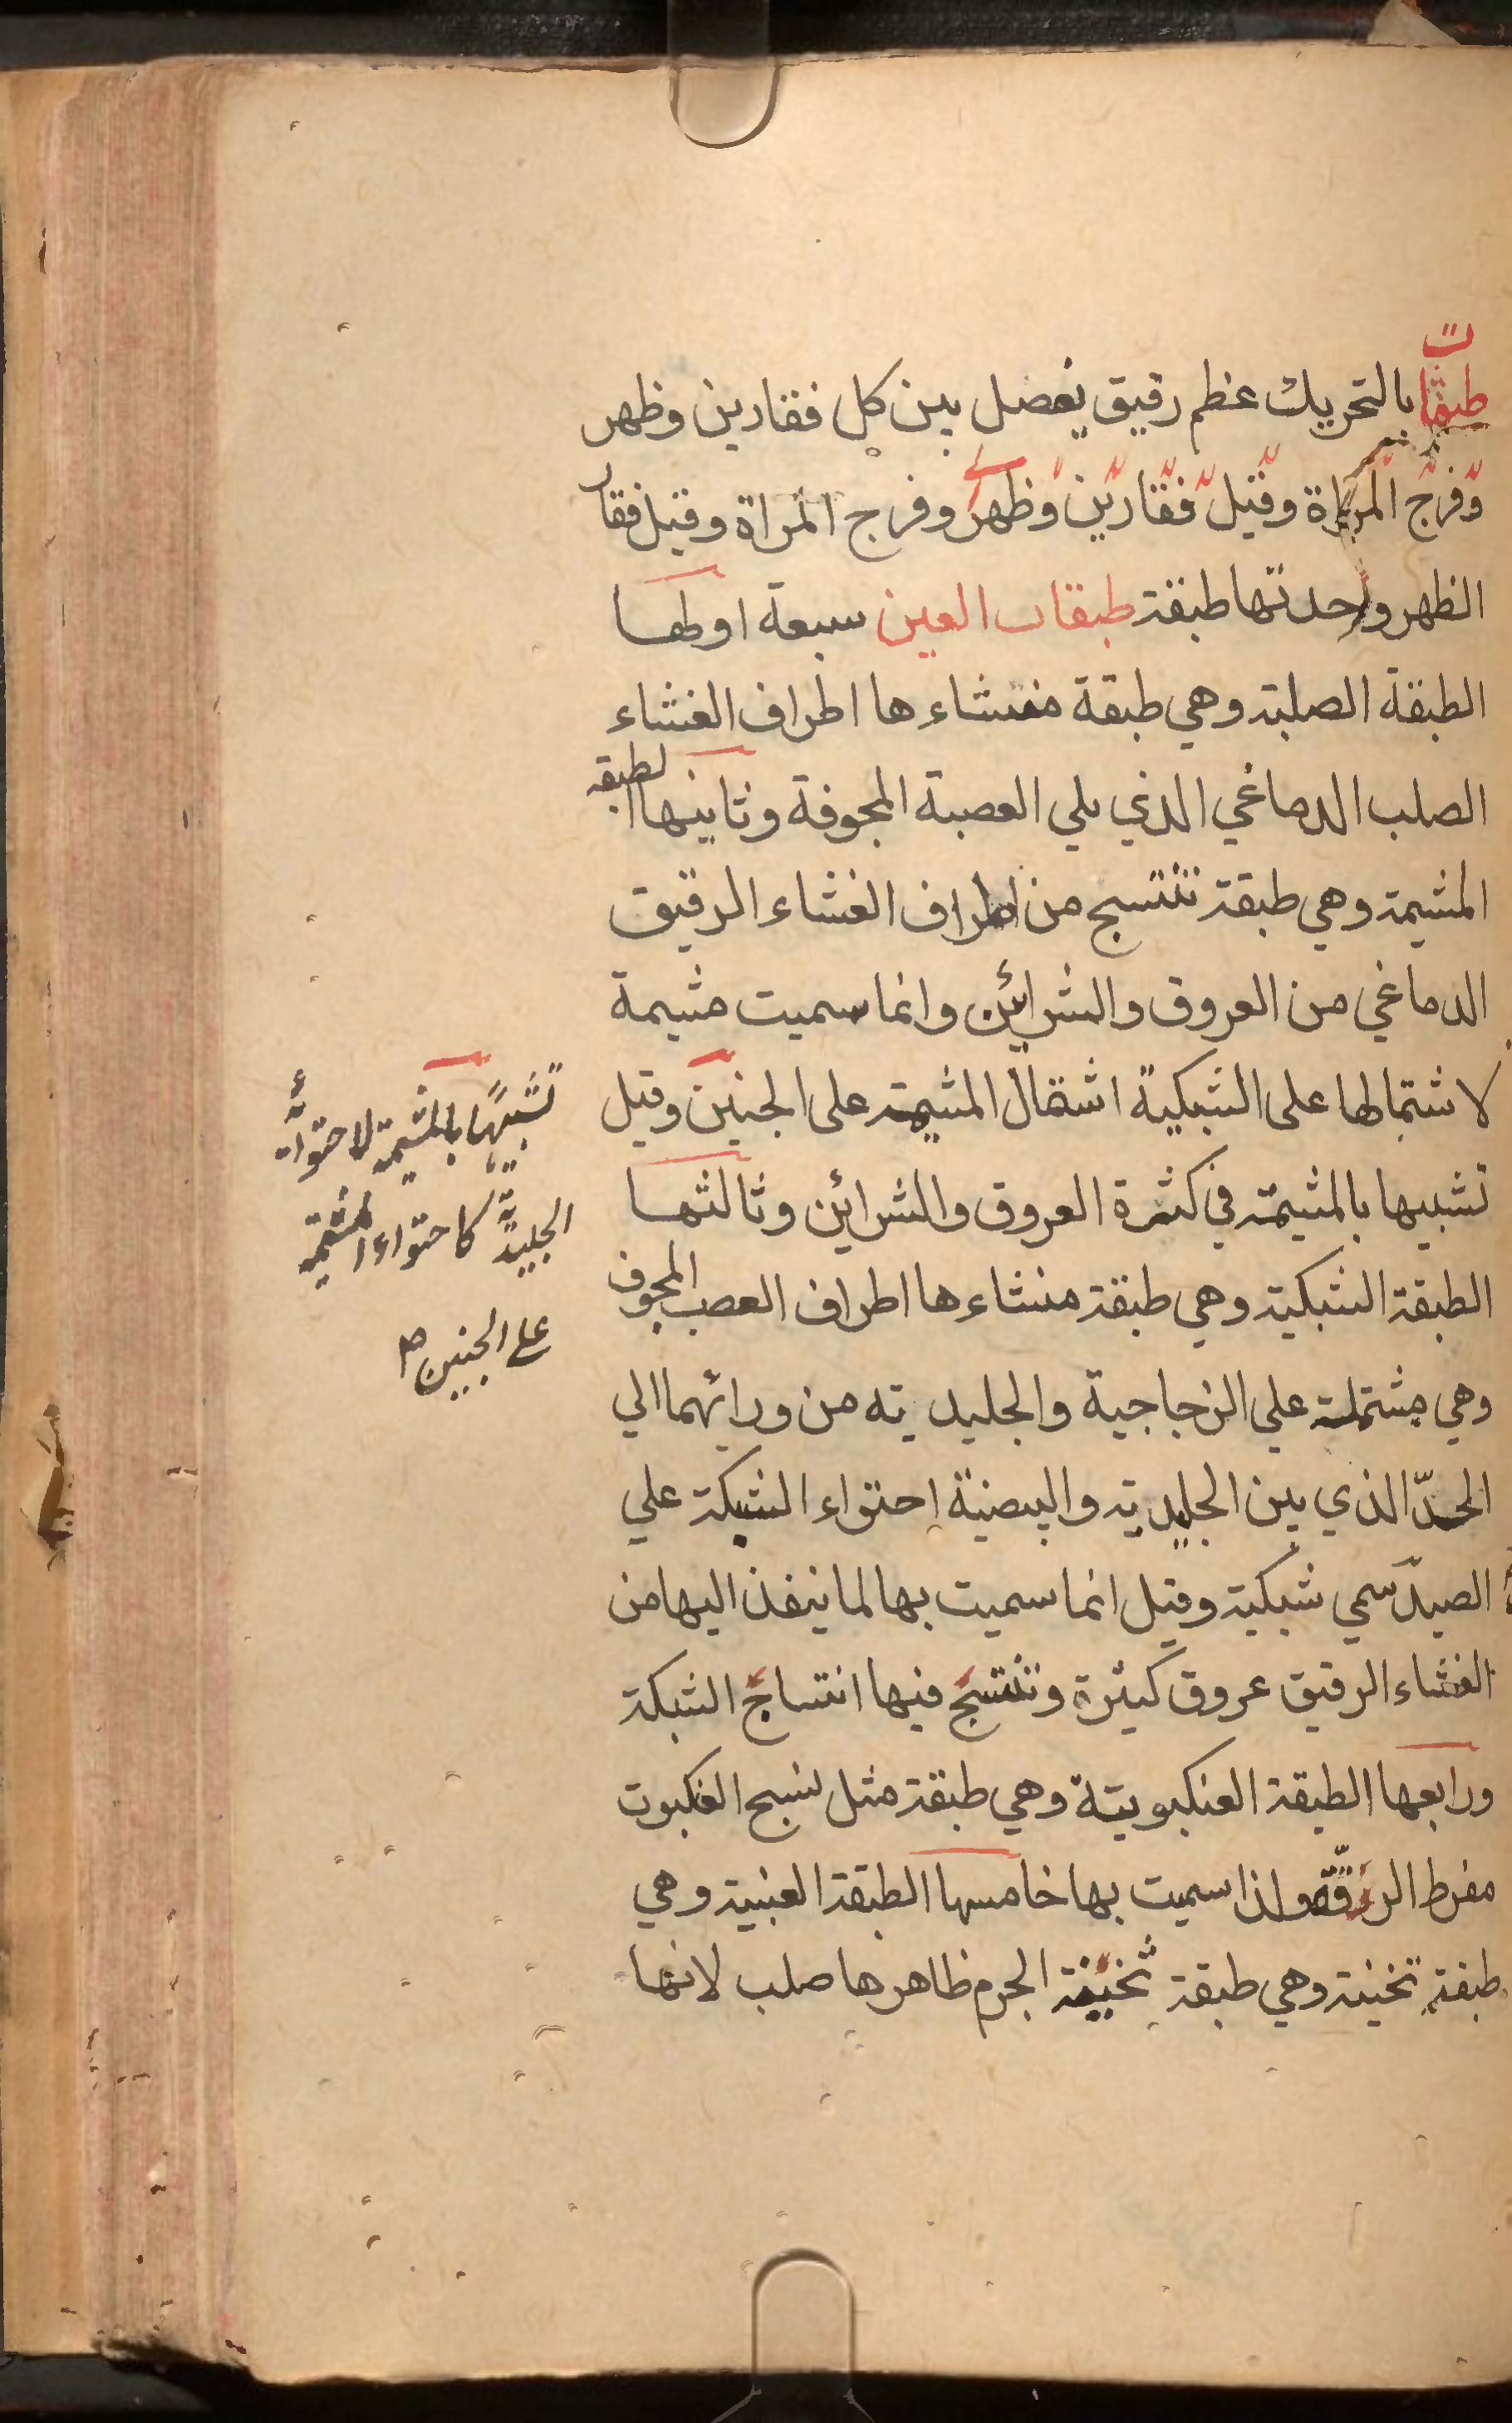 طبقات بالتحريك عظم رقيق يفصل بين كل فقارين وظهر
وفرج المراة وقيل فقارين وظهر وفرج المراة وقيل فقار
الظهر واحدتها طبقة طبقات العين سبعة اولها
الطبقة الصلبة وهي طبقة منشاءها اطراف الغشاء
الصلب الدماغي الذي يلي العصبة المجوفة وثانيها الطبقه
المشيمة وهي طبقة تنتسج من اطراف الغشاء الرقيق
الدماغي من العروق والشرائين وانما سميت مشيمة
لاشتمالها على الشبكية اشتمال المشيمة على الجنين وقيل
تشبيها بالمشيمة في كثرة العروق والشرائين وثالثها
الطبقة الشبكية وهي طبقة منشاءها اطراف العصب المجوف
وهي مشتملة علي الزجاجية والجليدية من ورائهما الي
الحدّ الذي بين الجليدية والبيضية احتواء الشبكة علي
الصيد سمي شبكية وقيل انما سميت بها لما ينفذ اليها من
الغشاء الرقيق عروق كثيرة وتنتسج فيها انتساج الشبكة
ورابعها الطبقة العنكبوتية وهي طبقة مثل نسج العنكبوت
مفرط الرقّة ولذا سميت بها خامسها الطبقة العنبية وهي
طبقة ثخينة وهي طبقة ثخينة الجرم ظاهرها صلب لانها
تشبيهًا بالمشيمة لاحتوائه
الجليديّة كاحتواء المشيمة
على الجنين صح